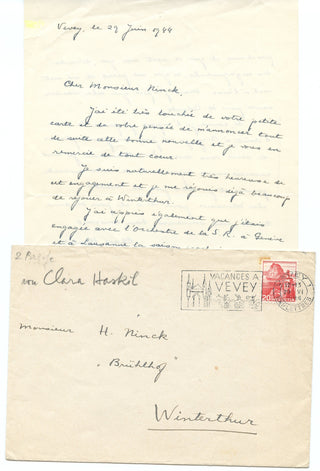 Vevey, le 29 Juin 1944
Cher Monsieur Ninck,
J'ai été très touchée de votre petite
carte et de votre pensée de m'annoncer tout
de suite cette bonne nouvelle et je vous en
remercie de tout cœur.
Je suis naturellement très heureuse de
cet engagement et je me réjouis déjà beaucoup
de rejouer à Winterthur.
J'ai appris également que j'étais
engagée avec l'Orchestre de la S.R. à Genève
et à Lausanne la saison
2 Briefe
von Clara Haskil
VACANCES A
VEVEY
Monsieur H. Ninck
"Brühlhof"
Winterthur